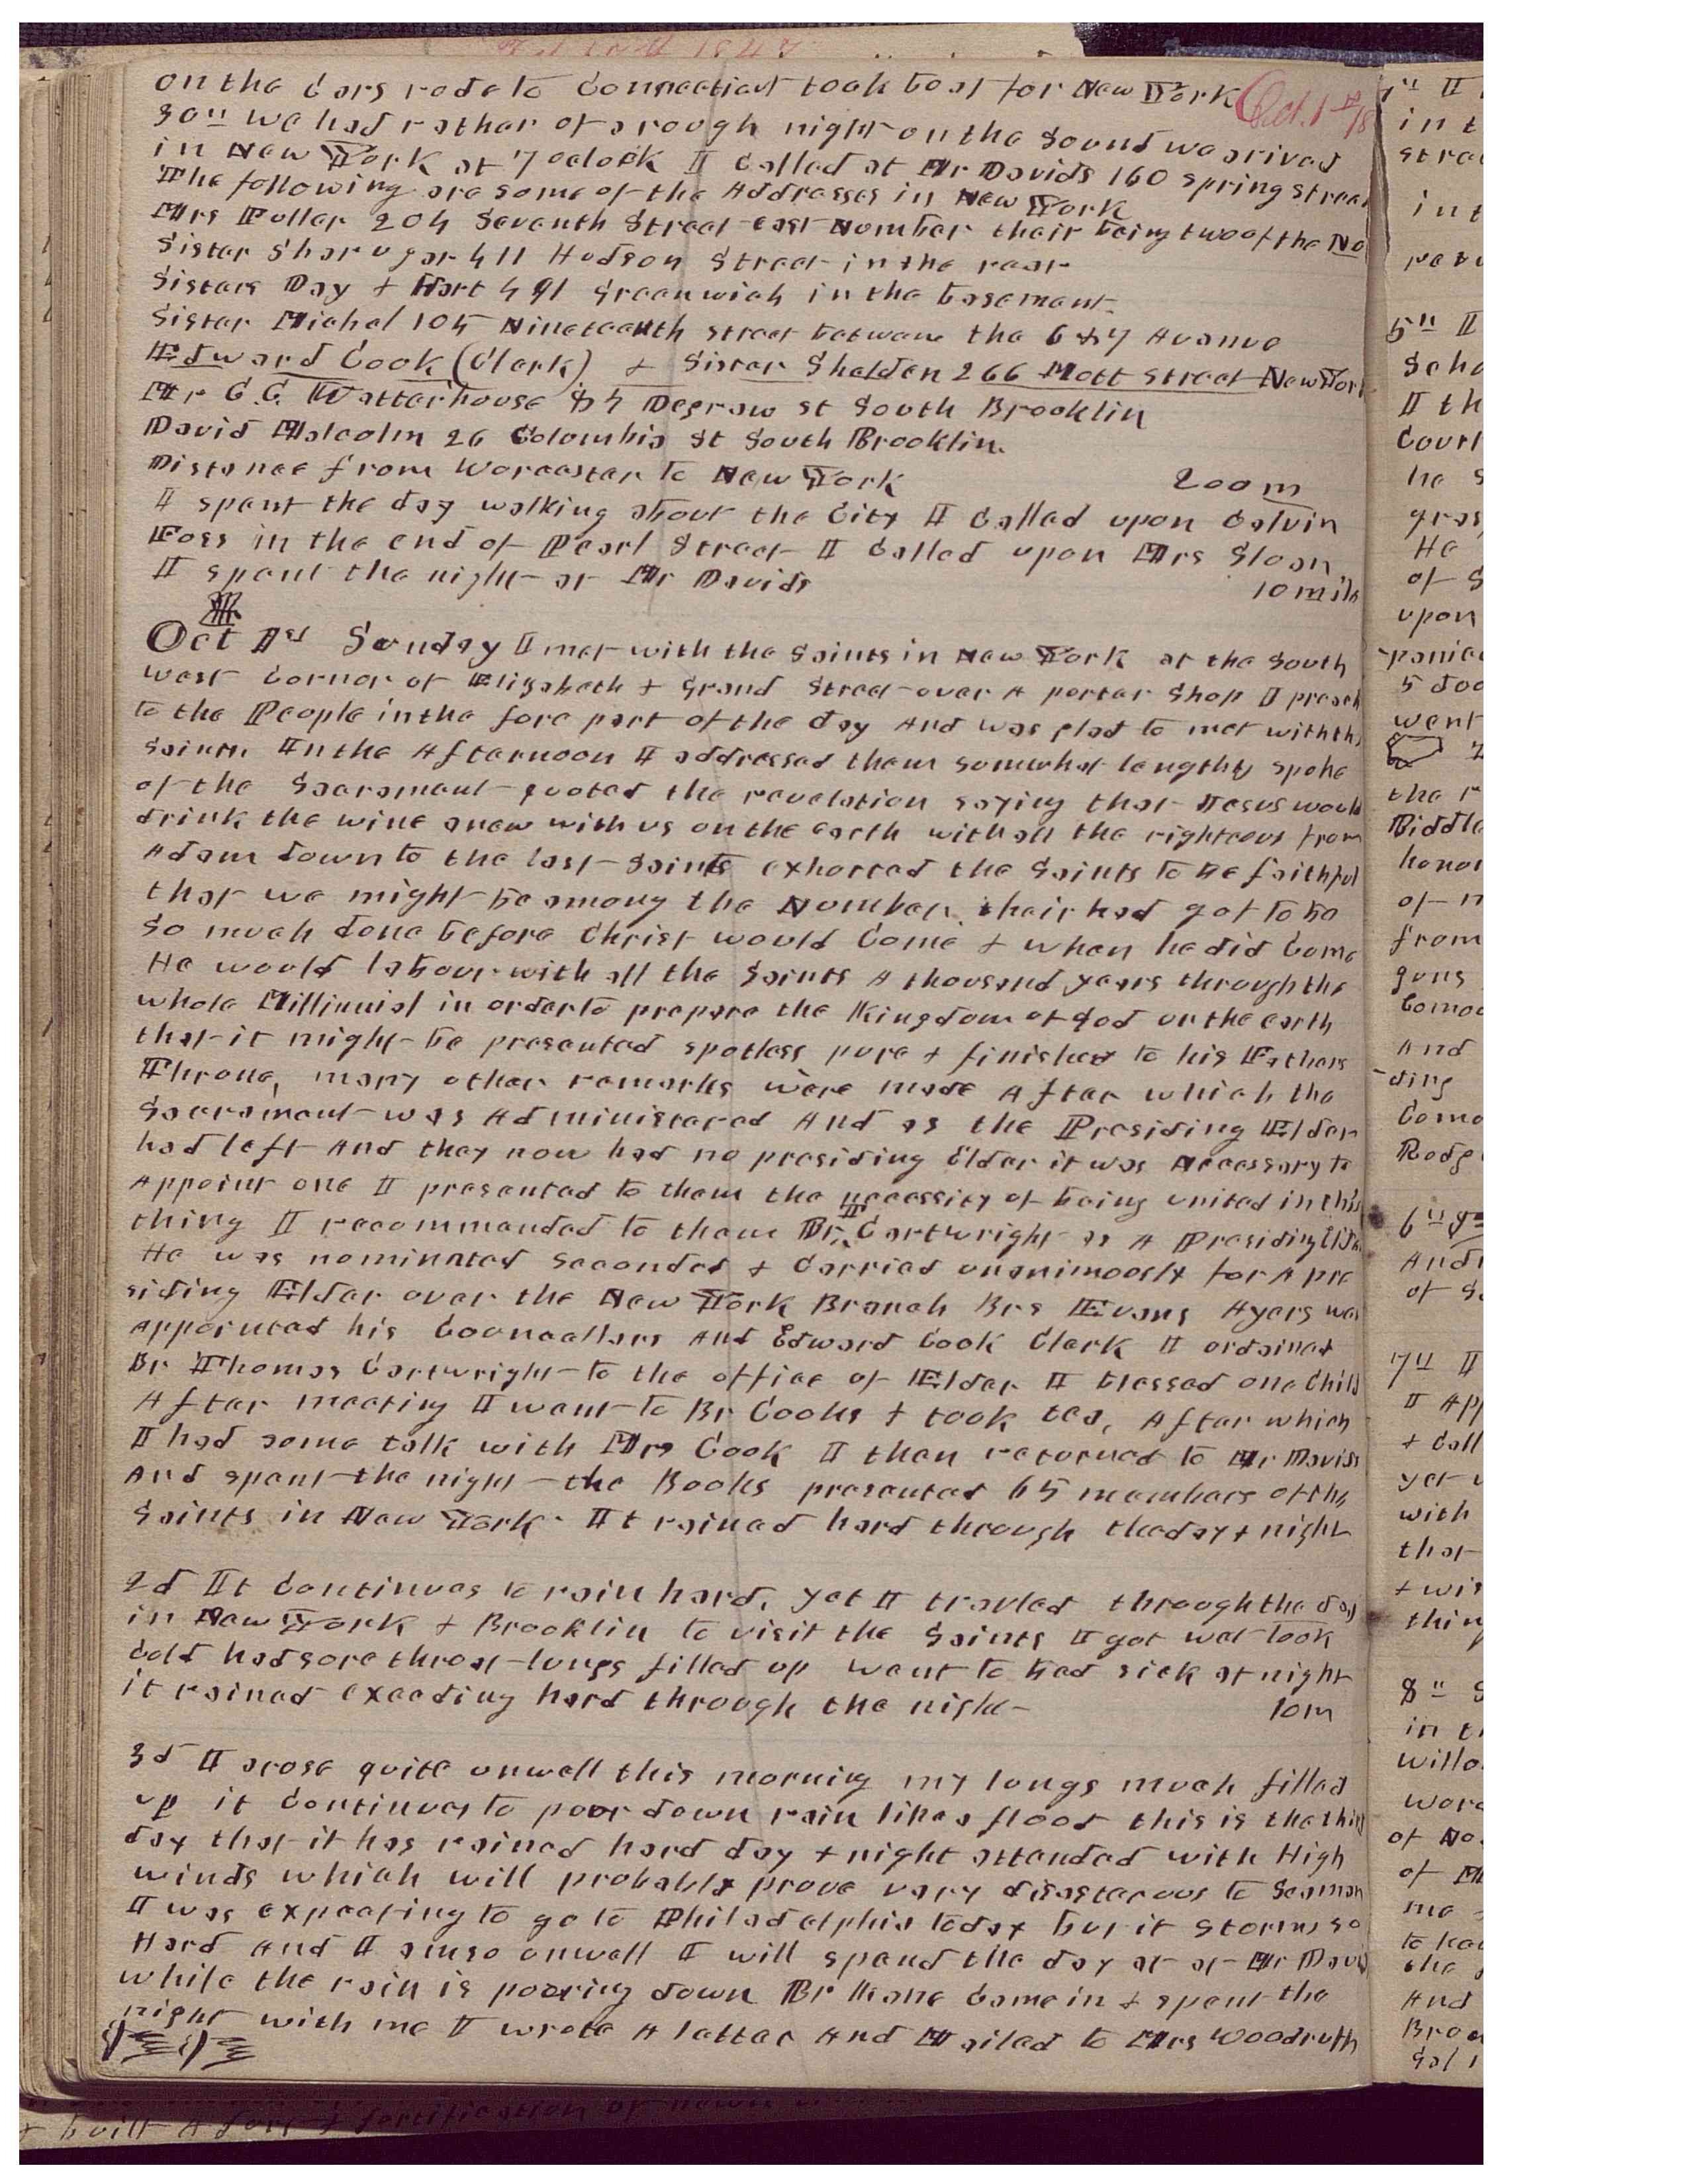 Oct. 1st 18
on the Cars rode to Connecticut took boat for New York
30th we had rather of a rough night on the Sound we arived
in New York at 7 oclock I Called at Mr Davids 160 spring street
The following are some of the Addresses in New York
Mrs Puller 204 Seventh Street east Number their being two of the No
Sister Sharugar 411 Hudson Street in the rear
Sisters Day & Hart 491 Greenwich in the basement.
Sister Michel 105 Nineteenth street betwene the 6 & 7 Avenue
Edward Cook (Clerk) & Sister Shelden 266 Mott street New York
Mr C. G. Watterhouse 84 Degraw st South Brooklin
David Malcolm 26 Columbia St South Brooklin.
Distance from Worcester to New York 200 m
I spent the day walking about the City I Called upon Calvin
Foss in the end of Pearl Street I Called upon Mrs Sloan
I spent the night at Mr Davids 10 mile
Oct 1st Sunday I met with the Saints in New York at the South
west Corner of Elizabeth & Grand Street over A porter Shop I preach
to the People in the fore part of the day And was glad to met with th
Saints In the Afternoon I addressed them somwhat lengthy spoke
of the Sacrament quoted the revelation saying that Jesus would
drink the wine anew with us on the earth with all the righteous from
Adam down to the last Saints exhorted the Saints to be faithful
that we might be among the Number. their had got to be
So much done before Christ would Come & when he did Come
He would labour with all the Saints A thousand years through the
whole Millinnial in order to prepare the Kingdom of God on the earth
that it might be presented spotless pure & finished to his Fathers
Throne, many other remarks were made After which the
Sacrament was Administered And as the Presiding Elder
had left And they now had no presiding Elder it was Necessary to
Appoint one I presented to them the necessity of being united in this
thing I recommended to them Br T Cartwright as A Presiding Elder
He was nominated seconded & Carried unanimously for A pre
siding Elder over the New York Branch Brs Evans Ayers was
appointed his Councellors And Edward Cook Clerk I ordained
Br Thomas Cartwright to the office of Elder I blessed one Child
After meeting I went to Br Cooks & took tea, After which
I had some talk with Mrs Cook I then returned to Mr Davids
And spent the night the Books presented 65 members of the
Saints in New York. It rained hard through the day & night
2d It Continues to rain hard, yet I travled through the day
in New York & Brooklin to visit the Saints I got wet took
cold had sore throat lungs filled up went to bed sick at night
it rained exceding hard through the night 10 m
3d I arose quite unwell this morning my lungs much filled
up it Continues to poor down rain like a flood this is the third
day that it has rained hard day & night attended with High
winds which will probably prove very disasterous to Seaman
I was expecting to go to Philadelphia today but it storms so
Hard And I am so unwell I will spend the day at at Mr Davis
while the rain is pooring down Br Kane Came in & spent the
night with me I wrote A letter And Mailed to Mrs Woodruff